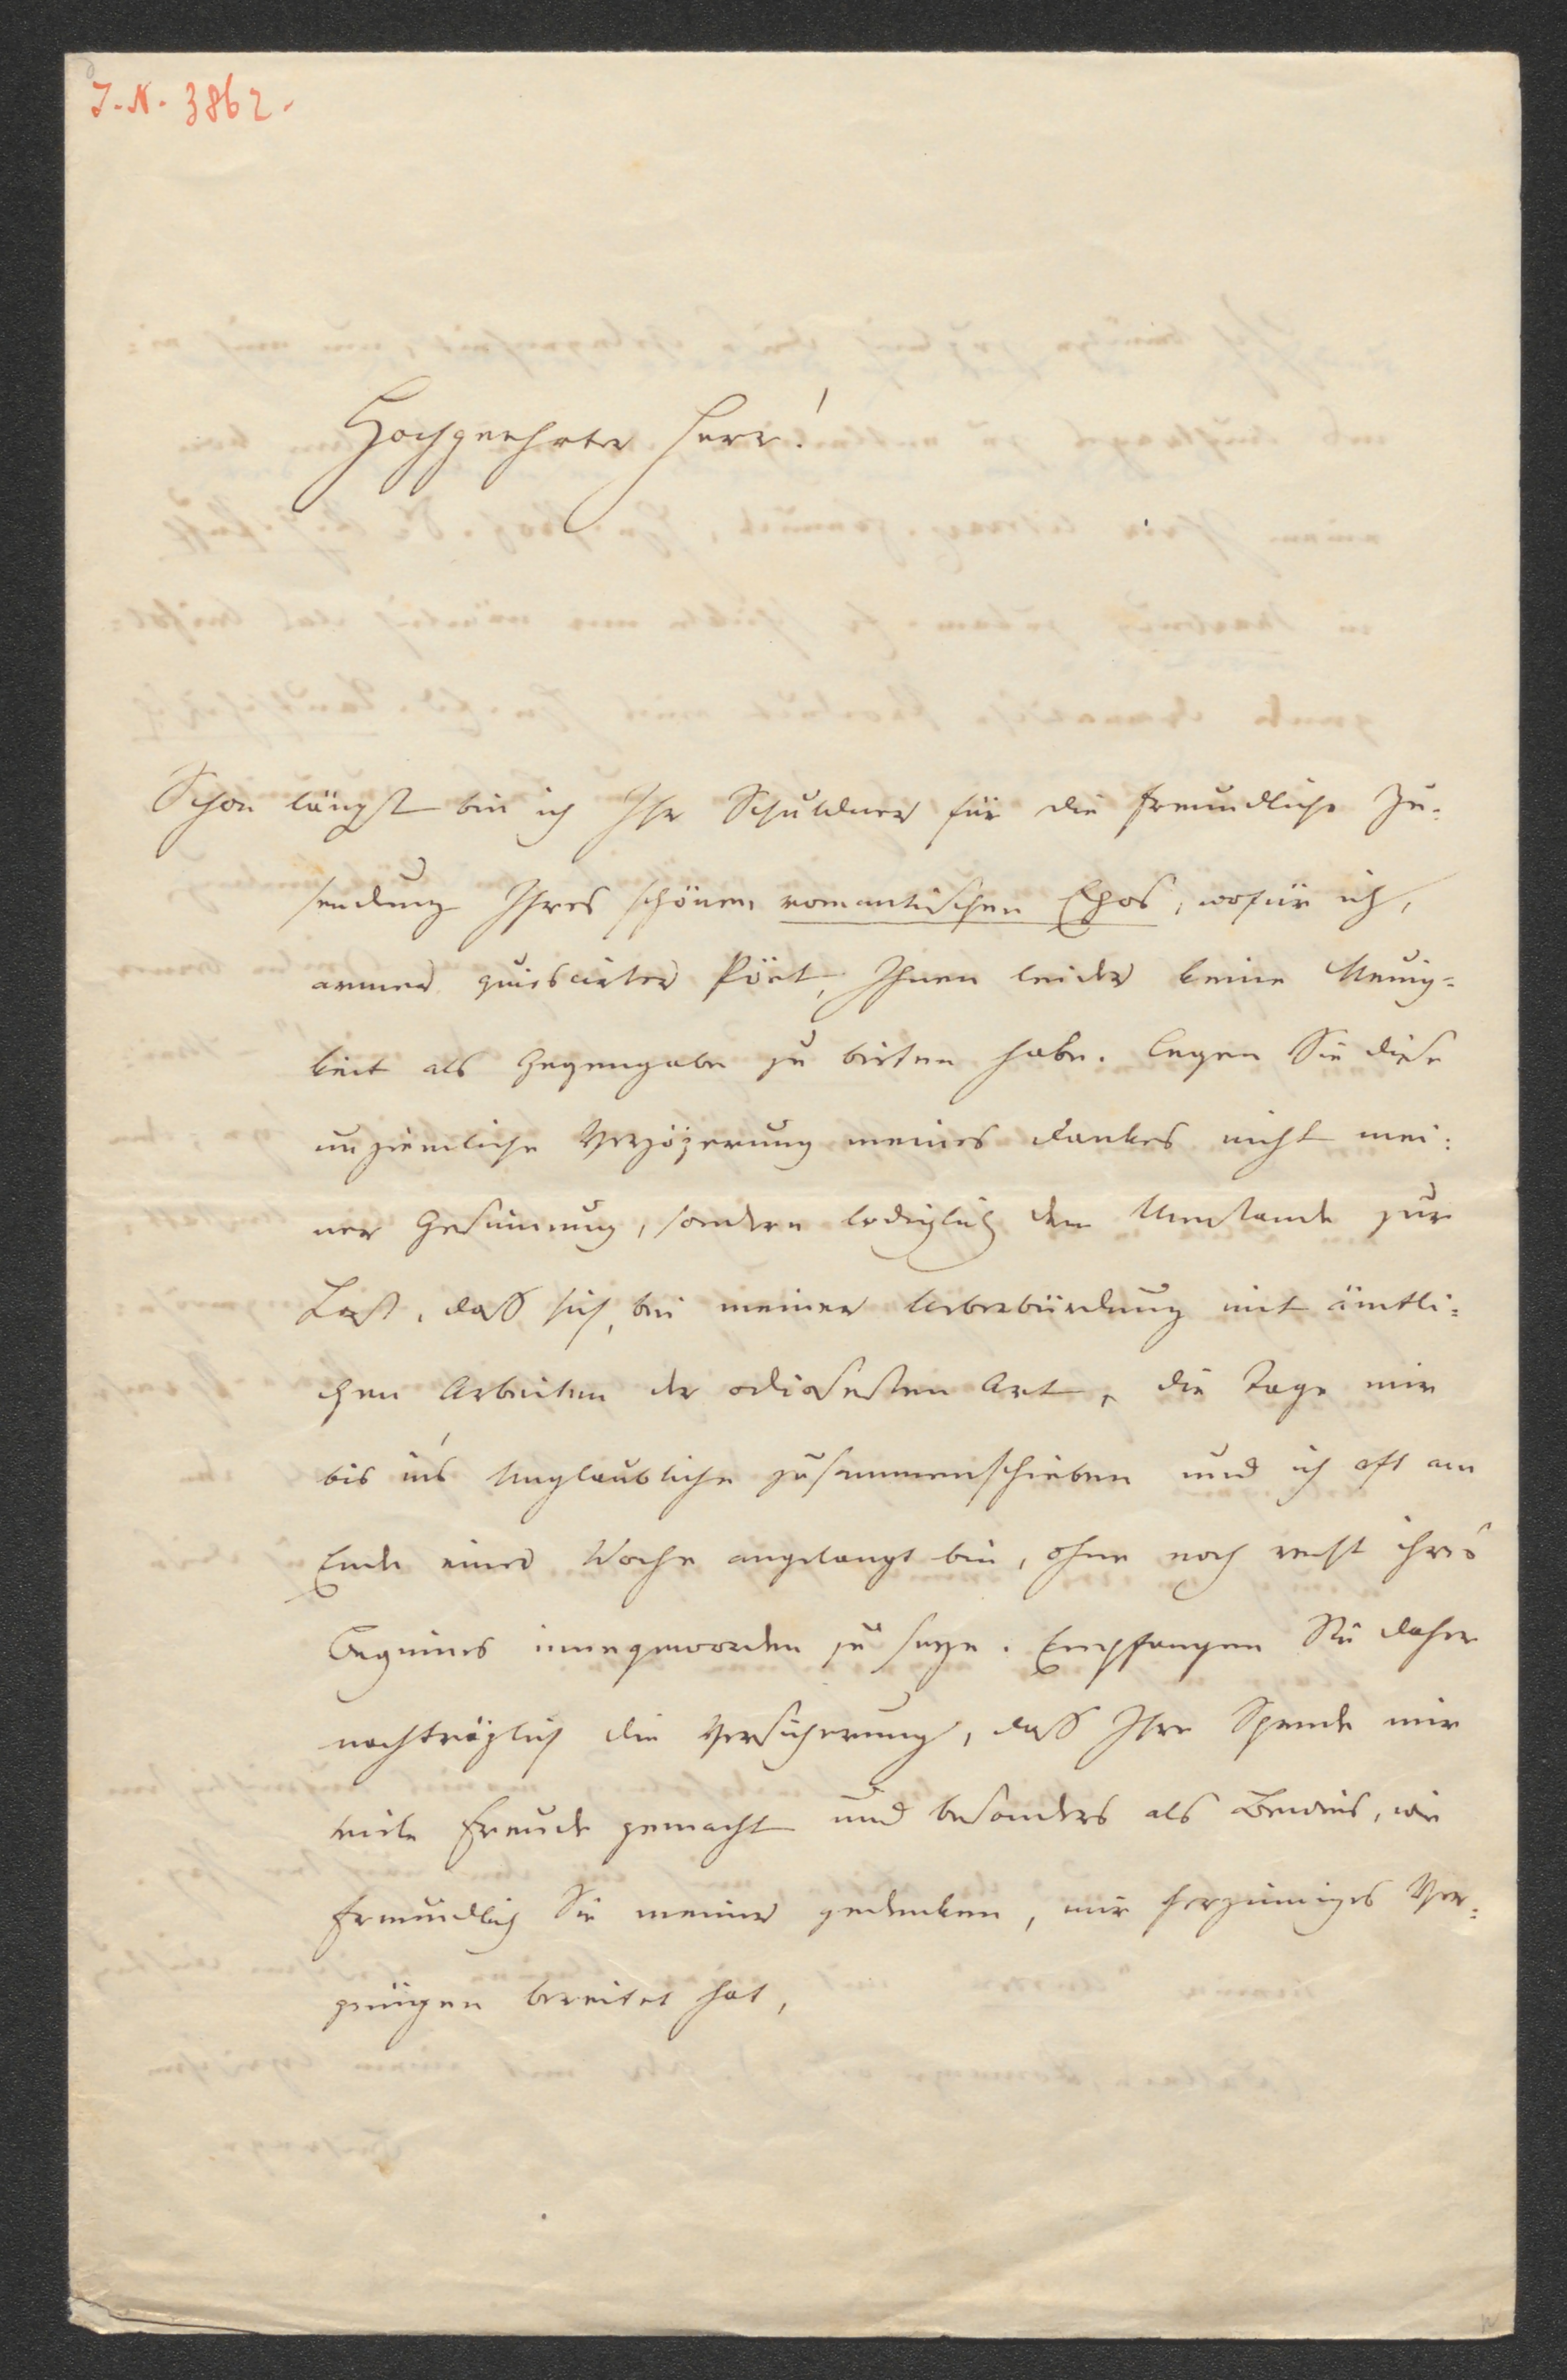 J. N. 3862.
Hochgeehrter Herr!
Schon längst bin ich Ihr Schuldner für die freundliche Zu-
sendung Ihres schönen romantischen Epos, wofür ich,
armer quiescirter Pöet, Ihnen leider keine Neuig-
keit als Gegengabe zu bieten habe. Legen Sie diese
unziemliche Verzögerung meines Dankes nicht mei-
ner Gesinnung, sondern lediglich dem Umstande zur
Last, daß sich, bei meiner Ueberbürdung mit ämtli-
chen Arbeiten der odiosesten Art, die Tage mir
bis in's Unglaubliche zusammenschieben und ich oft am
Ende einer Woche angelangt bin, ohne noch recht ihres
Beginnes innegeworden zu seyn. Empfangen Sie daher
nachträglich die Versicherung, daß Ihre Spende mir
viele Freude gemacht und besonders als Beweis, wie
freundlich Sie meiner gedenken, mir herzinniges Ver-
gnügen bereitet hat,